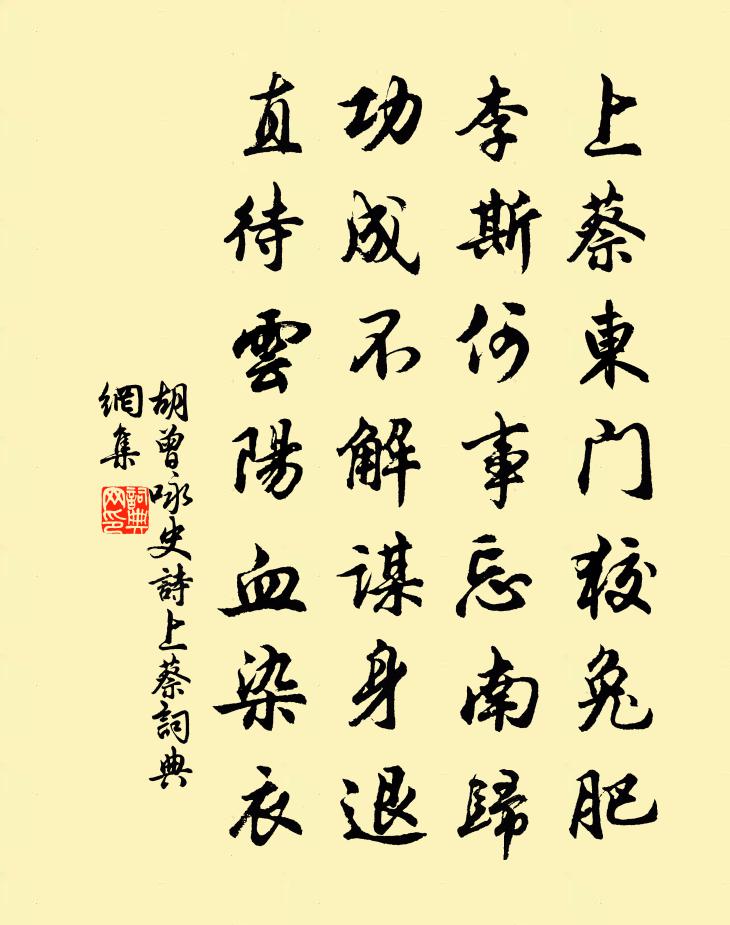 上蔡東门狡兔肥
李斯何事忘南歸
功成不解謀身退
直待雲陽血染衣
胡曾咏史詩上蔡詞典
網集
詞典
网印